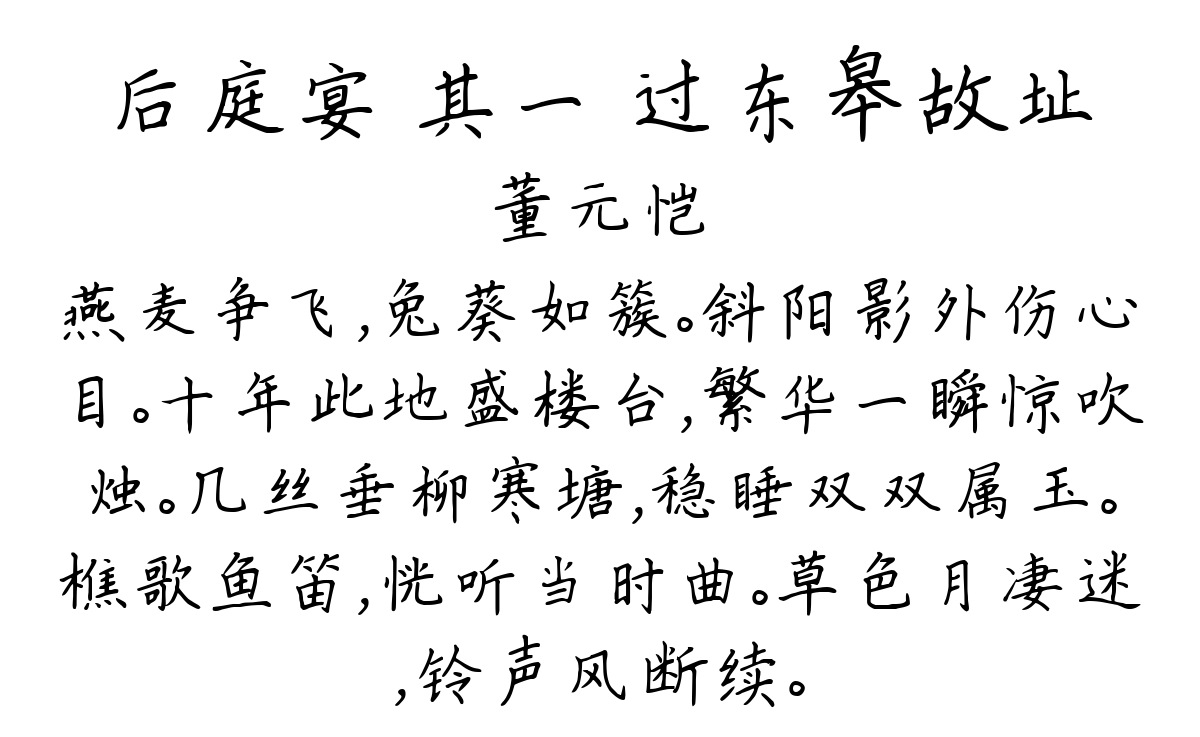 后庭宴 其一 过东皋故址
董元恺
燕麦争飞,兔葵如簇。斜阳影外伤心
目。十年此地盛楼台,繁华一瞬惊吹
烛。几丝垂柳寒塘,稳睡双双属玉。
樵歌鱼笛,恍听当时曲。草色月凄迷
,铃声风断续。